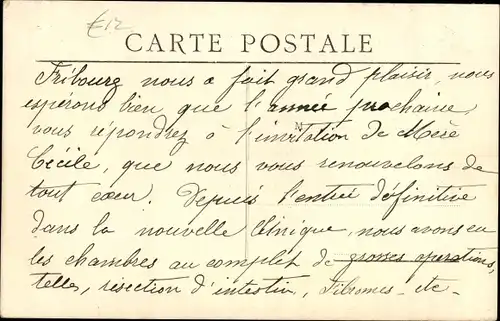 £12
CARTE POSTALE
Fribourg nous a fait grand plaisir, nous
esperons bien que l'année prochaine
vous répondrez à l'invitation de Mère
Cécile, que nous vous renouvelons de
tout cœur. Depuis l'entrée définitive
dans la nouvelle Clinique, nous avons eu
les chambres au complet de grosses operations,
telles, résection d'intestin, Fibromes - etc -